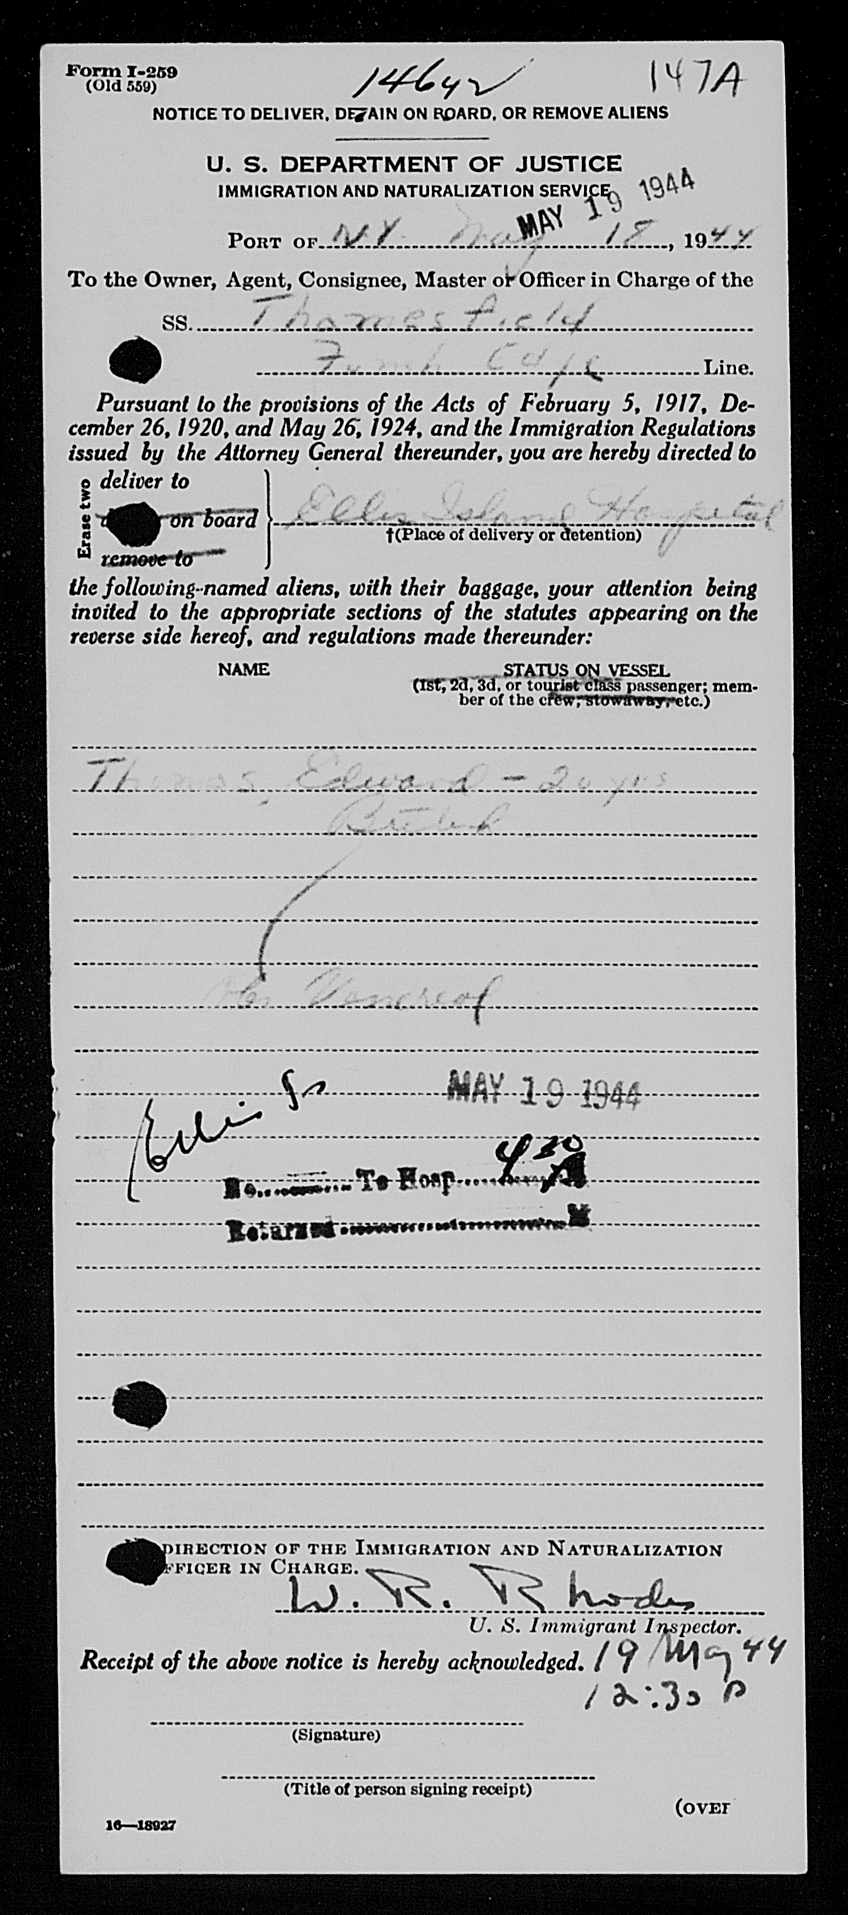 Form I-259
(Old 559)
147A
NOTICE TO DELIVER, DETAIN ON BOARD, OR REMOVE ALIENS
U. S. DEPARTMENT OF JUSTICE
IMMIGRATION AND NATURALIZATION SERVICE
MAY 19 1944
PORT OF N.Y. May 18, 1944
To the Owner, Agent, Consignee, Master or Officer in Charge of the
SS. Thamesfield
Line.
Pursuant to the provisions of the Acts of February 5, 1917, De-
cember 26, 1920, and May 26, 1924, and the Immigration Regulations
issued by the Attorney General thereunder, you are hereby directed to
Erase two
deliver to
on board
remove to
Ellis Island Hospital
†(Place of delivery or detention)
the following-named aliens, with their baggage, your attention being
invited to the appropriate sections of the statutes appearing on the
reverse side hereof, and regulations made thereunder:
NAME STATUS ON VESSEL
(1st, 2d, 3d, or tourist class passenger; mem-
ber of the crew, stowaway, etc.)
Thomas, Edward - 20 yrs
British
Venereal
Ellis Is MAY 19 1944
4 30
No. To Hosp. M
Returned M
DIRECTION OF THE IMMIGRATION AND NATURALIZATION
OFFICER IN CHARGE.
W. R. Rhodes
U. S. Immigrant Inspector.
Receipt of the above notice is hereby acknowledged. 19 May 44
12:30 P
(Signature)
(Title of person signing receipt)
(OVER
16—18927